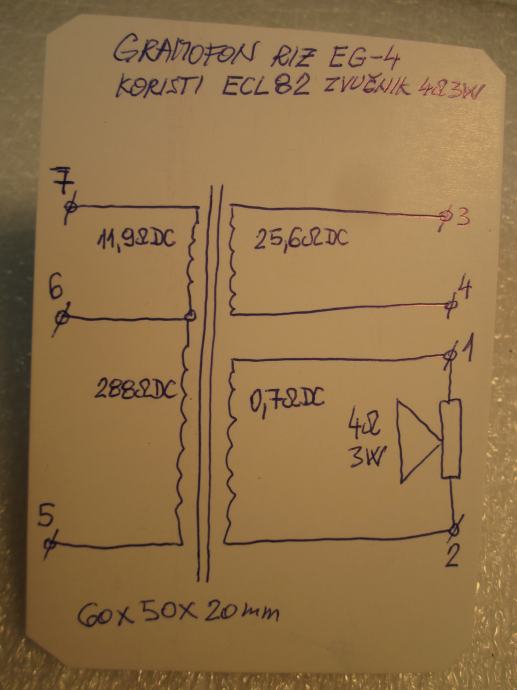 GRAMOFON RIZ EG-4
KORISTI ECL82 ZVUČNIK 4Ω3W
7
3
11,9ΩDC
25,6ΩDC
6
4
1
288ΩDC
0,7ΩDC
4Ω
3W
5
2
60x50x20mm